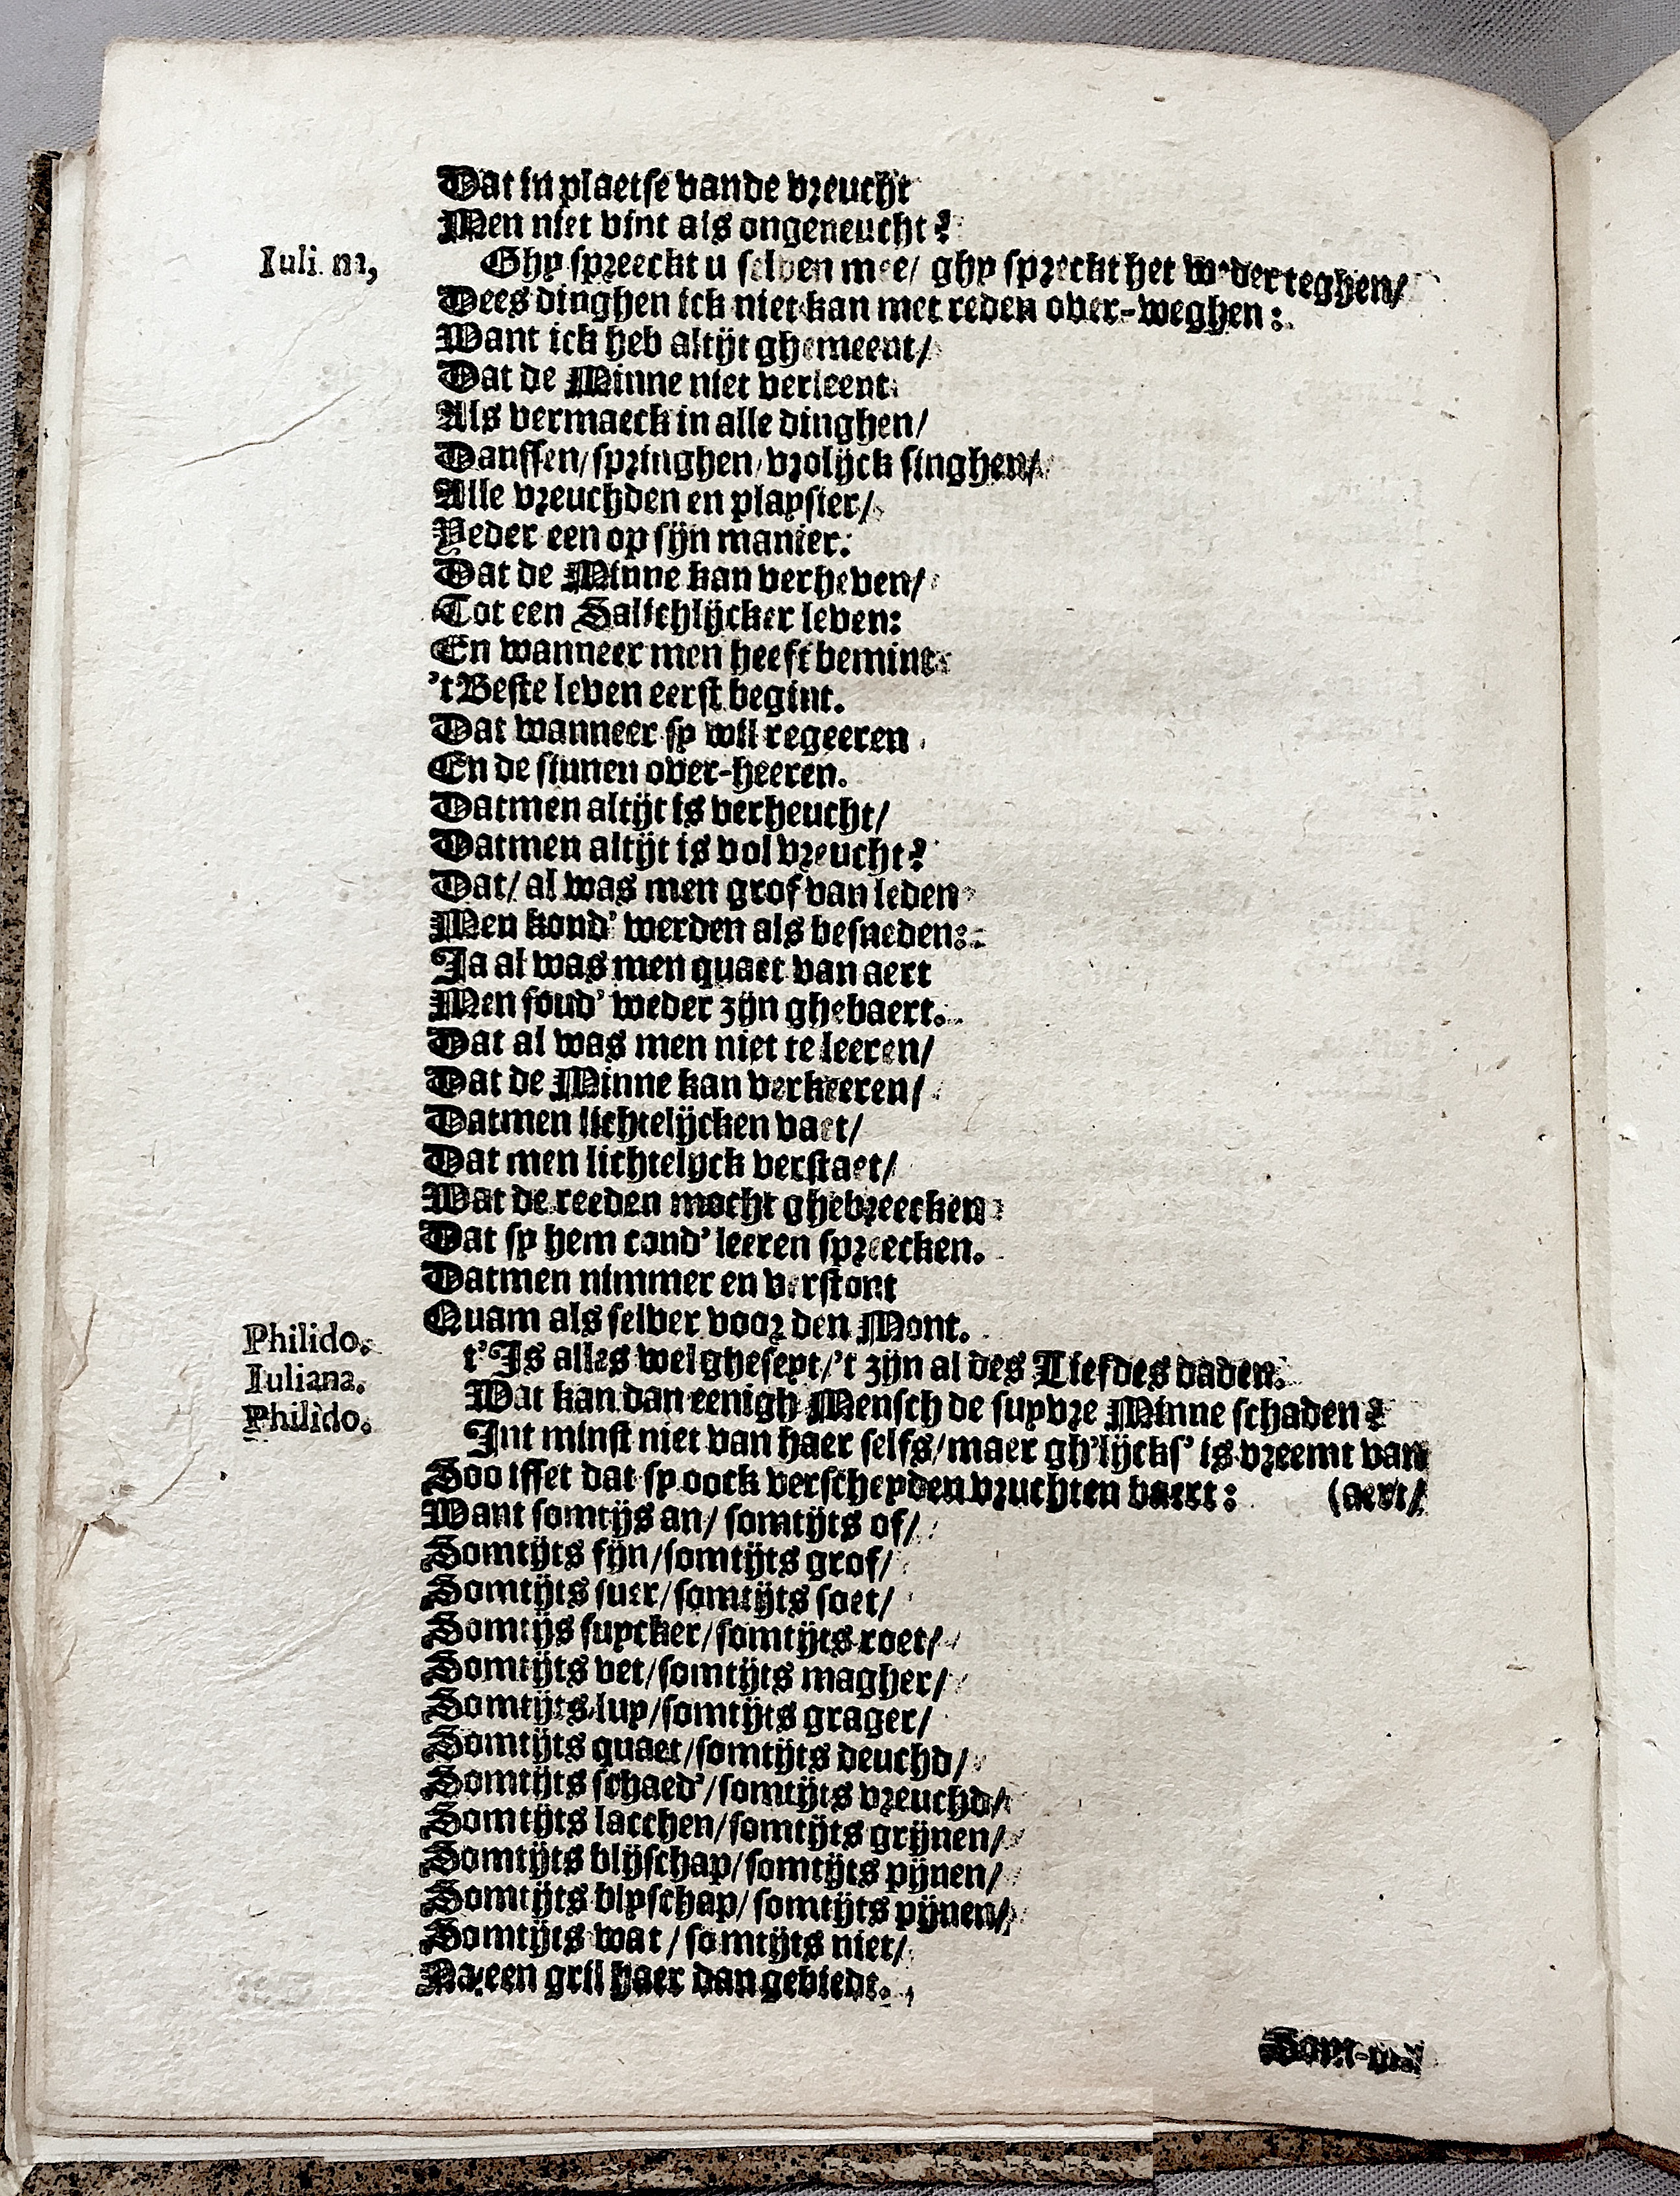 Dat in plaetse vande vreucht
Men niet vint als ongeneucht?
Iuli na, Ghy spreeckt u selven mee/ ghy spreckt het weder teghen/
Dees dinghen ick niet kan met reden over-weghen:
Want ick heb altijt ghemeent/
Dat de Minne niet verleent
Als vermaeck in alle dinghen/
Danssen/springhen/vrolijck singhen/
Alle vreuchden en playsier/
Yeder een op sijn manier:
Dat de Minne kan verheven/
Tot een Salichlijcker leven:
En wanneer men heeft bemint
'tBeste leven eerst begint.
Dat wanneer sy wil regeeren
En de sinnen over-heeren.
Datmen altijt is verheucht/
Datmen altijt is vol vreucht?
Dat/ al was men grof van leden
Men kond' werden als besneden:
Ja al was men quaet van aert
Men soud' weder zijn ghebaert.
Dat al was men niet te leeren/
Dat de Minne kan verkeeren/
Datmen lichtelijcken vaet/
Dat men lichtelijck verstaet/
Wat de reeden mocht ghebreecken
Dat sy hem cond' leeren spreecken.
Datmen nimmer en verstont
Quam als selver voor den Mont.
Philido. t'Is alles wel gheseyt/'t zijn al des Liefdes daden.
Iuliana. Wat kan dan eenigh Mensch de suyvre Minne schaden?
Philido. Int minst niet van haer selfs/maer gh'lijcks' is vreemt van
Soo isset dat sy oock verscheyden vruchten baert: (aert/
Want somtijs an/ somtijts of/
Somtijts fijn/somtijts grof/
Somtijts suer/somtijts soet/
Somtijs suycker/somtijts roet/
Somtijts vet/somtijts magher/
Somtijts luy/somtijts grager/
Somtijts quaet/somtijts deuchd/
Somtijts schaed'/somtijts vreuchd/
Somtijts lacchen/somtijts grijnen/
Somtijts blijschap/somtijts pijnen/
Somtijts blyschap/somtijts pijnen/
Somtijts wat/somtijts niet/
Na een gril haer dan gebiedt.